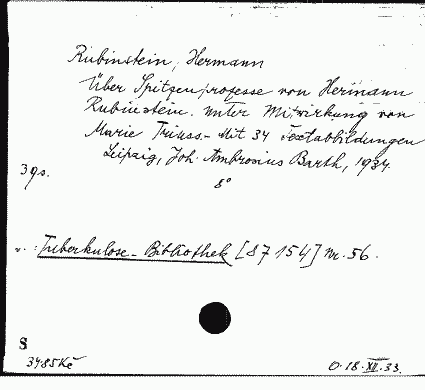 Rubinstein, Hermann
Über Spitzenprozesse von Hermann
Rubinstein. unter Mitwirkung von
Marie Triuss.- Mit 34 Textabbildungen
Leipzig, Joh. Ambrosius Barth, 1934.
39s.
8°
Tuberkulose-Bibliothek [87 154] Nr. 56.
S
3485 Kč
O. 18. XII. 33.